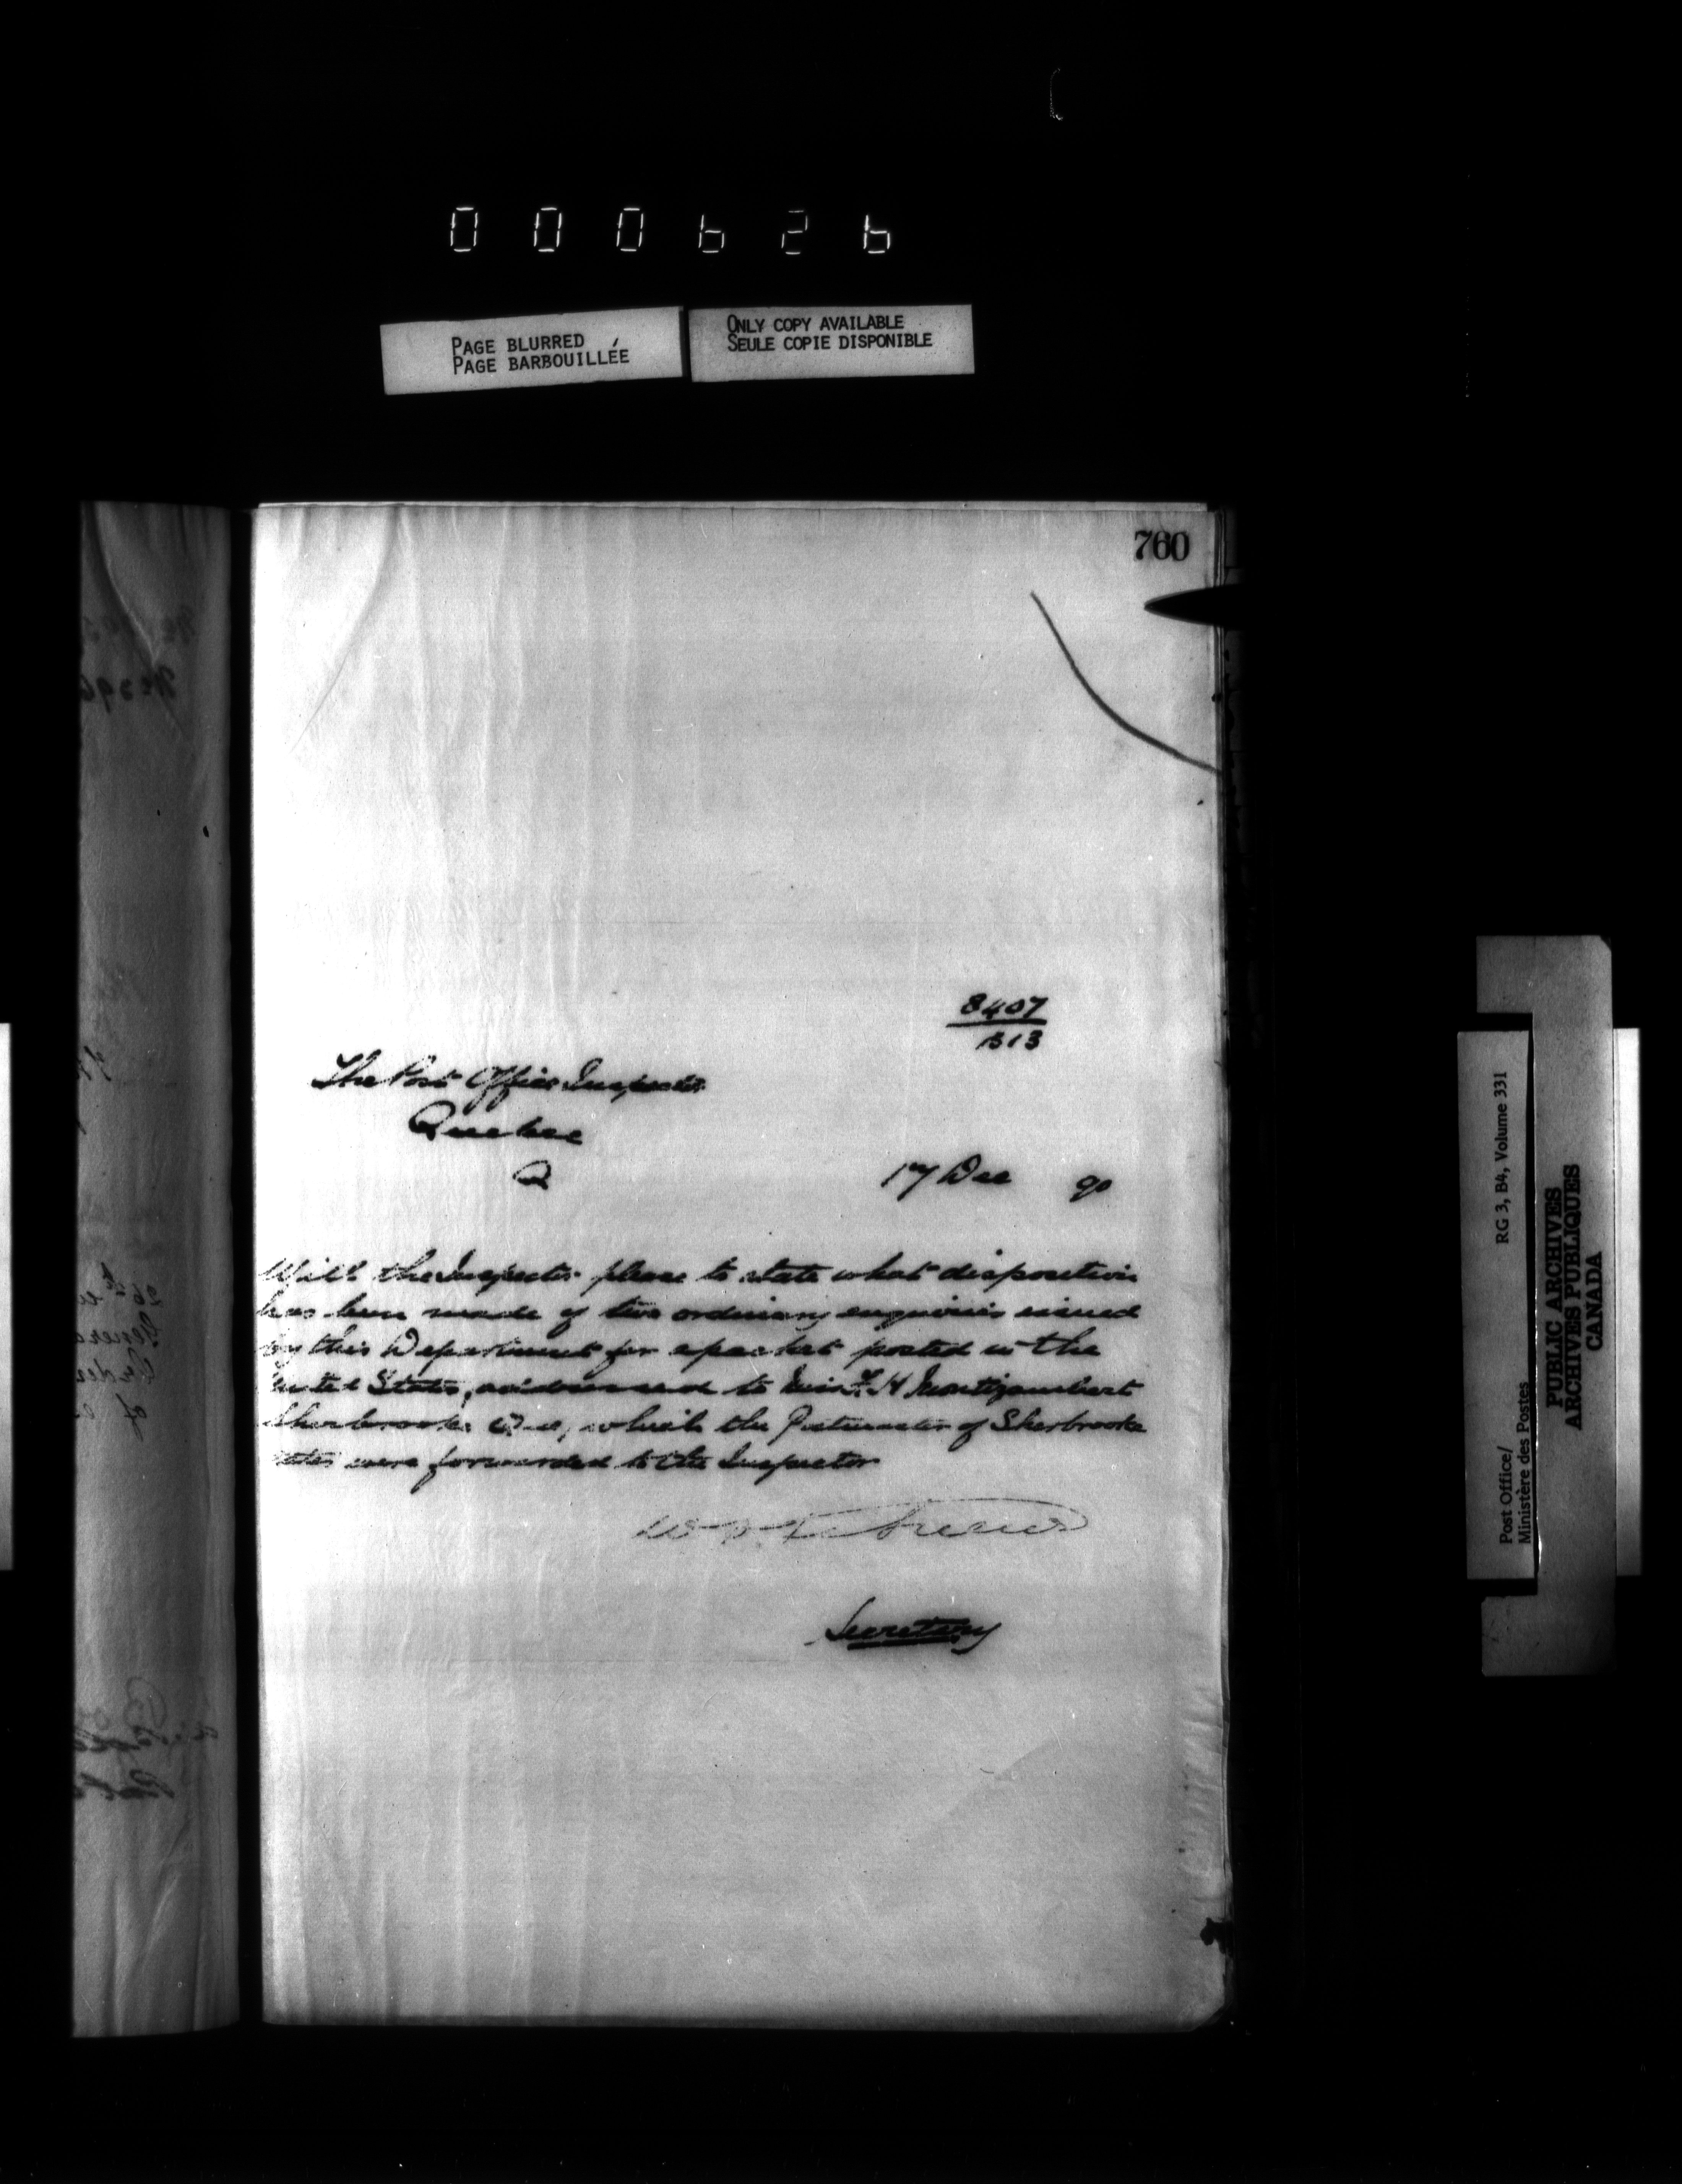 000626
PAGE BLURRED
PAGE BARBOUILLÉE
ONLY COPY AVAILABLE
SEULE COPIE DISPONIBLE
760
8407
513
The Post Office Inspector
Quebec
Q
17 Dec 90
Will the Inspector please to state what disposition
has been made of two ordinary enquiries issued
by this Department for a packet posted in the
United States, addressed to Miss H Montizambert
Sherbrooke Que, which the Postmaster of Sherbrooke
states were forwarded to the Inspector
Secretary
Post Office/
Ministère des Postes
RG 3, B4, Volume 331
PUBLIC ARCHIVES
ARCHIVES PUBLIQUES
CANADA